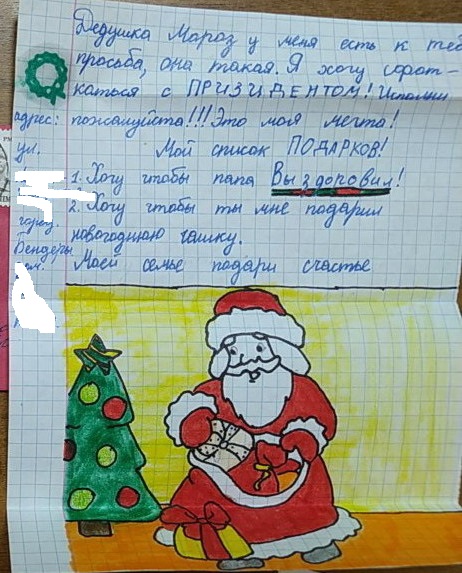 Дедушка Мароз у меня есть к теб
просьба, она такая. Я хочу сфот-
каться с ПРИЗИДЕНТОМ! Исполни
адрес: пожалуйста!!! Это моя мечта!
ул. Мой список ПОДАРКОВ!
1. Хочу чтобы папа Выздоровил!
2. Хочу чтобы ты мне подарил
город.
новогоднюю чашку.
Бендеры
Моей семье подари счастье